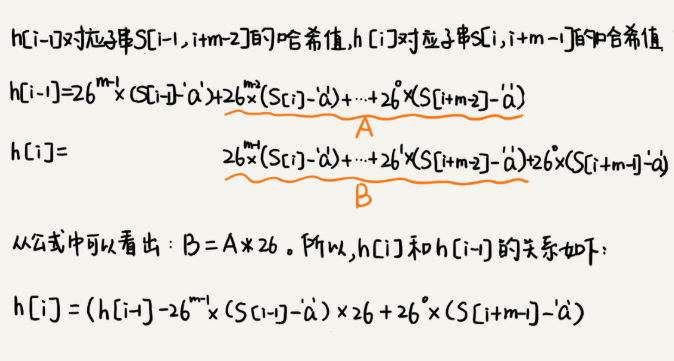 h[i-1]对应子串S[i-1, i+m-2]的哈希值, h[i]对应子串S[i, i+m-1]的哈希值
h[i-1]=26^{m-1}×(S[i-1]-'a')+26^{m-2}×(S[i]-'a')+…+26^0×(S[i+m-2]-'a')
A
h[i]= 26^{m-1}×(S[i]-'a')+…+26^1×(S[i+m-2]-'a')+26^0×(S[i+m-1]-'a')
B
从公式中可以看出：B=A*26。所以,h[i]和h[i-1]的关系如下：
h[i]=(h[i-1]-26^{m-1}×(S[i-1]-'a')×26+26^0×(S[i+m-1]-'a')